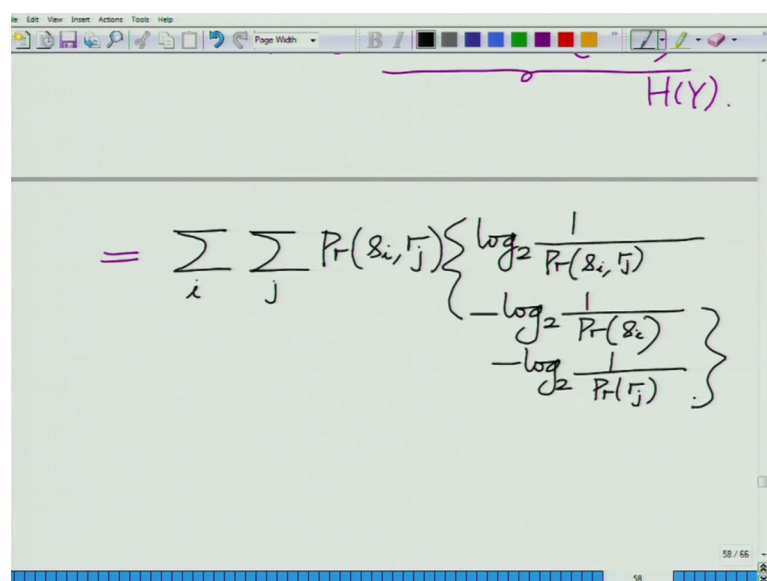 Edit View Insert Actions Tools Help
Page Width B I
H(Y).
= ∑ ∑ Pr(si, rj) { log2 1/Pr(si, rj)
i j
- log2 1/Pr(si)
- log2 1/Pr(rj) . }
58 / 66
58